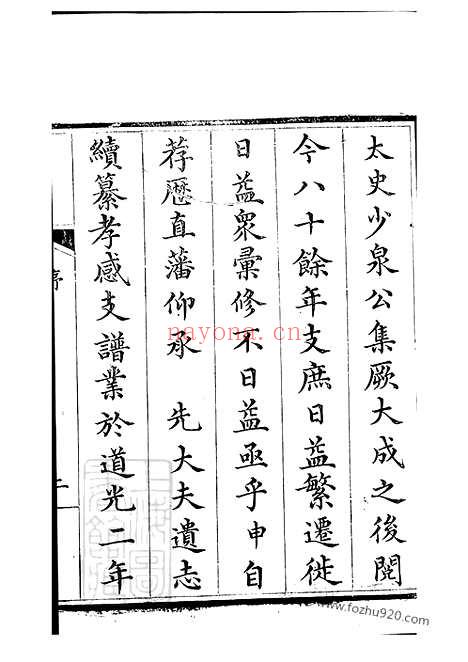 太史少泉公集厥大成之後閱
今八十餘年支庶日益繁遷徙
日益衆彙修不日益亟乎申自
荐歷直藩仰承 先大夫遺志
續纂孝感支譜業於道光二年
序
二
nayona.cn
www.fozhu920.com